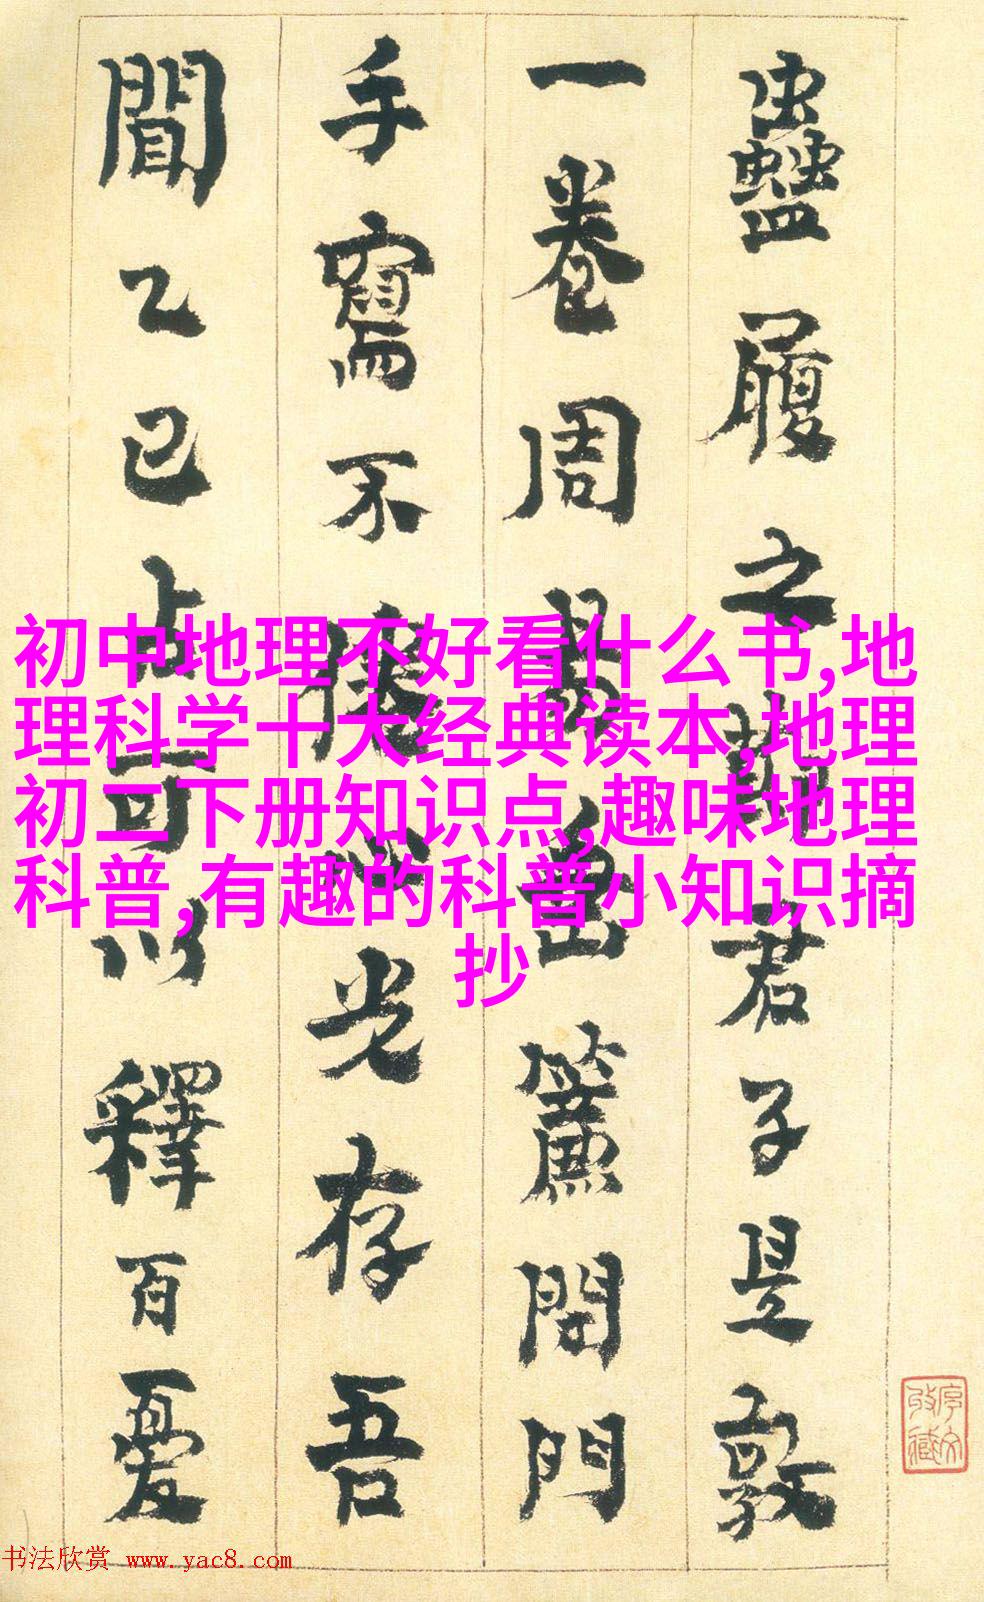 蠱履之君子是敦
一卷周易垂簾閉門
手寫不倦心光存吾
聞乙巳占可以釋百憂
初中地理不好看什么书,地
理科学十大经典读本,地理
初二下册知识点,趣味地理
科普,有趣的科普小知识摘
抄
书法欣赏 www.yac8.com